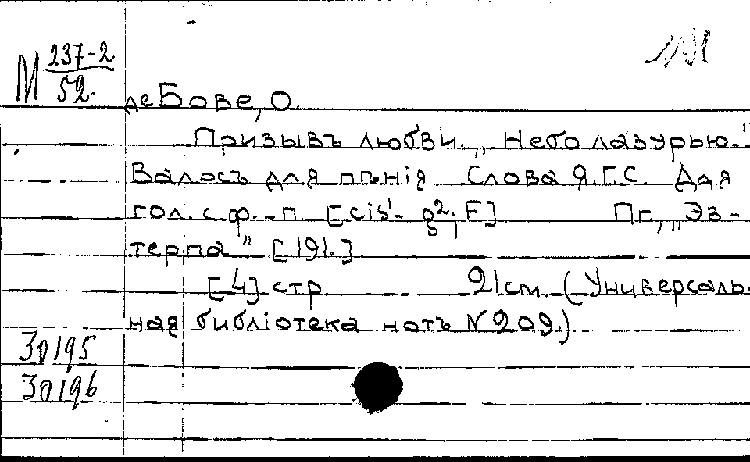 М 237-2
52.
де Бове, О.
Призывъ любви. „Небо лазурью."
Валосъ для пѣнія Слова Я.Г.С. Для
гол. с ф.-п [cis¹- g², F] Пг., „Эв-
терпа" [191.]
[4] стр 21см. (Универсаль-
ная библіотека нотъ №209.)
30195
30196